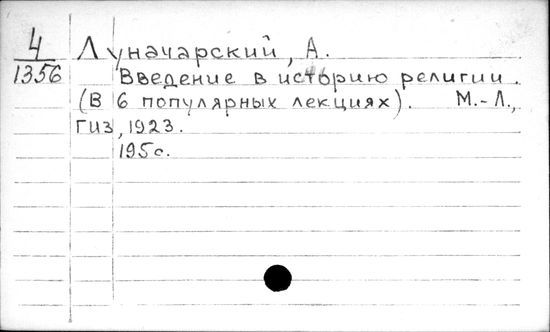 4
1356
Луначарский, А.
Введение в историю религии.
(В 6 популярных лекциях). М.-Л.,
ГИЗ, 1923.
195 с.